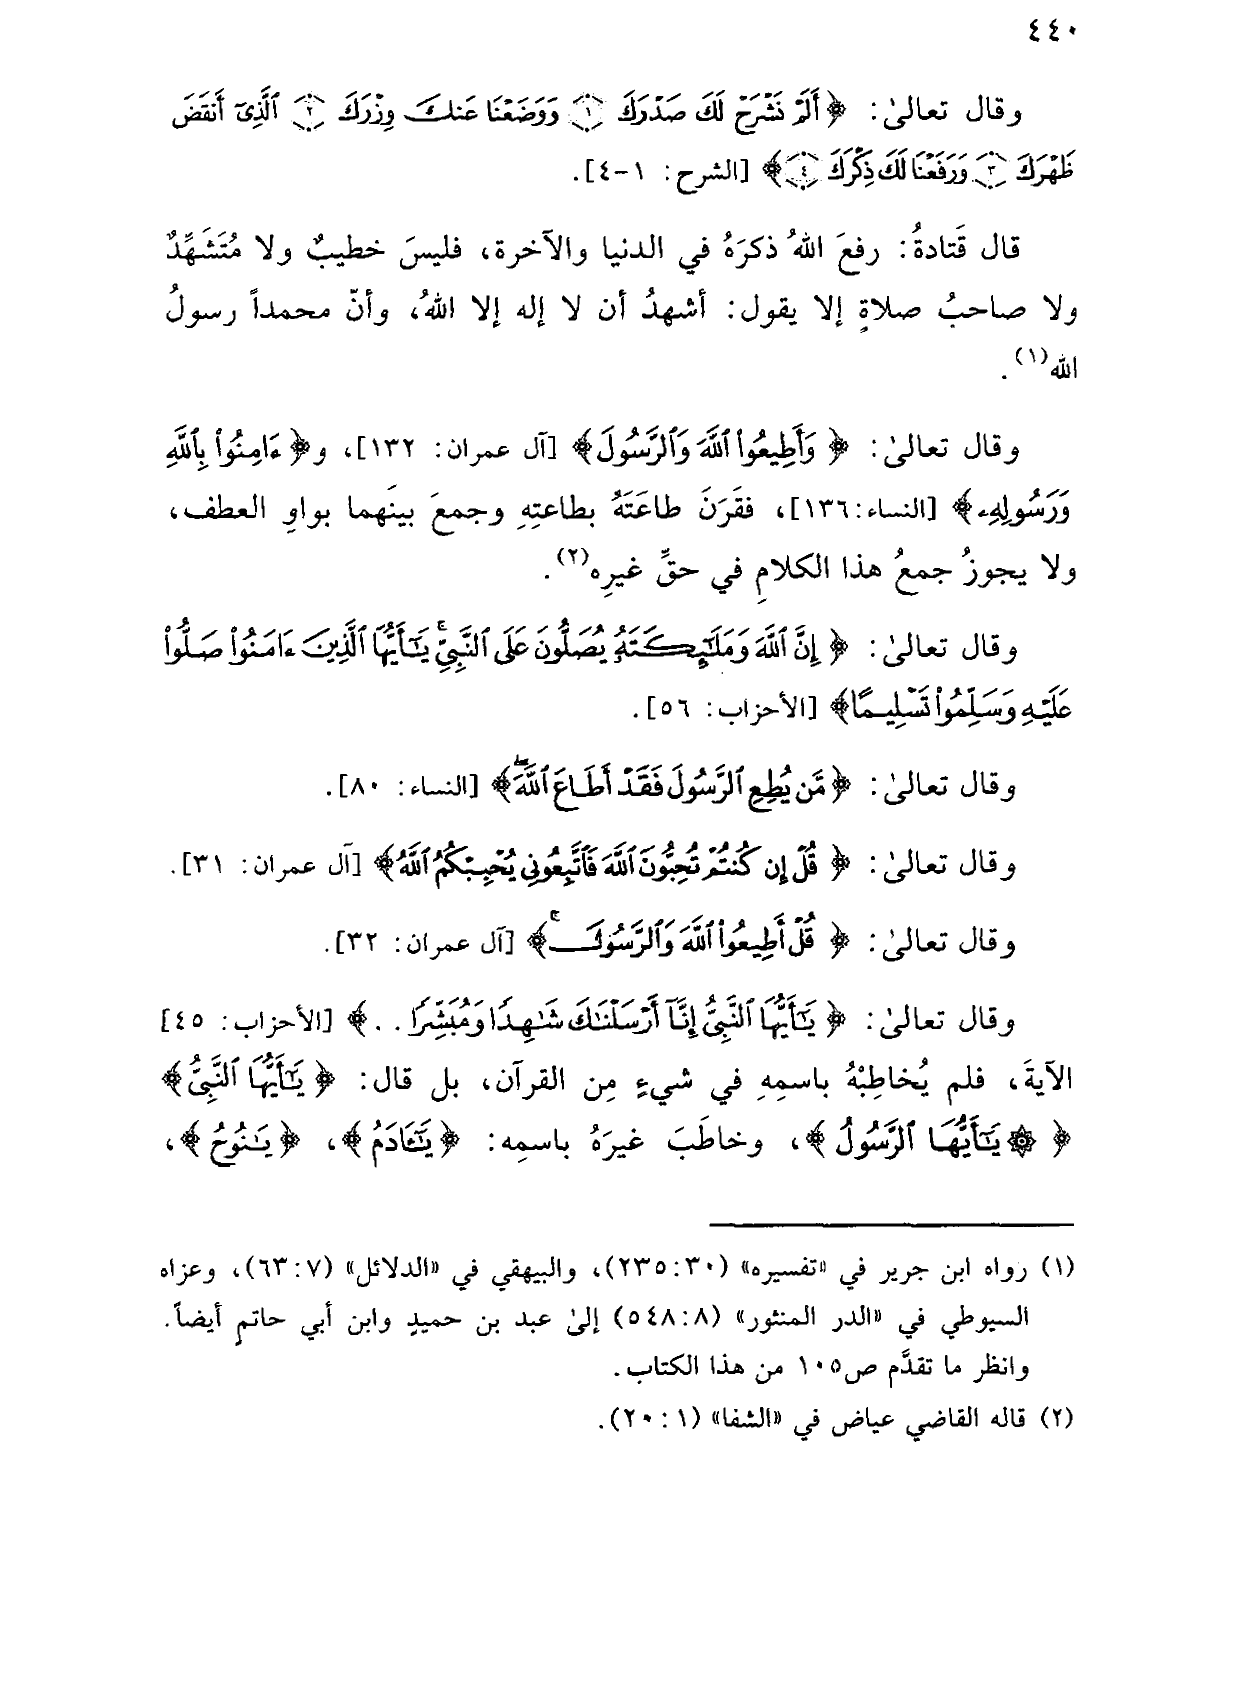 ٤٤٠
وقال تعالىٰ: ﴿ أَلَمْ نَشْرَحْ لَكَ صَدْرَكَ ۝١ وَوَضَعْنَا عَنكَ وِزْرَكَ ۝٢ ٱلَّذِىٓ أَنقَضَ
ظَهْرَكَ ۝٣ وَرَفَعْنَا لَكَ ذِكْرَكَ ۝٤ ﴾ [الشرح: ١-٤].
قال قَتادةُ: رفعَ اللهُ ذكرَهُ في الدنيا والآخرة، فليسَ خطيبٌ ولا مُتَشَهِّدٌ
ولا صاحبُ صلاةٍ إلا يقول: أشهدُ أن لا إله إلا اللهُ، وأنّ محمداً رسولُ
الله(١).
وقال تعالىٰ: ﴿ وَأَطِيعُوا۟ ٱللَّهَ وَٱلرَّسُولَ ﴾ [آل عمران: ١٣٢]، و﴿ ءَامِنُوا۟ بِٱللَّهِ
وَرَسُولِهِۦ ﴾ [النساء:١٣٦]، فقَرَنَ طاعَتَهُ بطاعتِهِ وجمعَ بينَهما بواوِ العطف،
ولا يجوزُ جمعُ هذا الكلامِ في حقِّ غيرِه(٢).
وقال تعالىٰ: ﴿ إِنَّ ٱللَّهَ وَمَلَٰٓئِكَتَهُۥ يُصَلُّونَ عَلَى ٱلنَّبِىِّ ۚ يَٰٓأَيُّهَا ٱلَّذِينَ ءَامَنُوا۟ صَلُّوا۟
عَلَيْهِ وَسَلِّمُوا۟ تَسْلِيمًا ﴾ [الأحزاب: ٥٦].
وقال تعالىٰ: ﴿ مَّن يُطِعِ ٱلرَّسُولَ فَقَدْ أَطَاعَ ٱللَّهَ ۖ ﴾ [النساء: ٨٠].
وقال تعالىٰ: ﴿ قُلْ إِن كُنتُمْ تُحِبُّونَ ٱللَّهَ فَٱتَّبِعُونِى يُحْبِبْكُمُ ٱللَّهُ ﴾ [آل عمران: ٣١].
وقال تعالىٰ: ﴿ قُلْ أَطِيعُوا۟ ٱللَّهَ وَٱلرَّسُولَ ۚ ﴾ [آل عمران: ٣٢].
وقال تعالىٰ: ﴿ يَٰٓأَيُّهَا ٱلنَّبِىُّ إِنَّآ أَرْسَلْنَٰكَ شَٰهِدًا وَمُبَشِّرًا . . ﴾ [الأحزاب: ٤٥]
الآيةَ، فلم يُخاطِبْهُ باسمِهِ في شيءٍ مِن القرآن، بل قال: ﴿ يَٰٓأَيُّهَا ٱلنَّبِىُّ ﴾
﴿ ۞ يَٰٓأَيُّهَا ٱلرَّسُولُ ﴾، وخاطَبَ غيرَهُ باسمِه: ﴿ يَٰٓـَٔادَمُ ﴾، ﴿ يَٰنُوحُ ﴾،
(١) رواه ابن جرير في «تفسيره» (٢٣٥:٣٠)، والبيهقي في «الدلائل» (٦٣:٧)، وعزاه
السيوطي في «الدر المنثور» (٥٤٨:٨) إلىٰ عبد بن حميدٍ وابن أبي حاتمٍ أيضاً.
وانظر ما تقدَّم ص١٠٥ من هذا الكتاب.
(٢) قاله القاضي عياض في «الشفا» (٢٠:١).